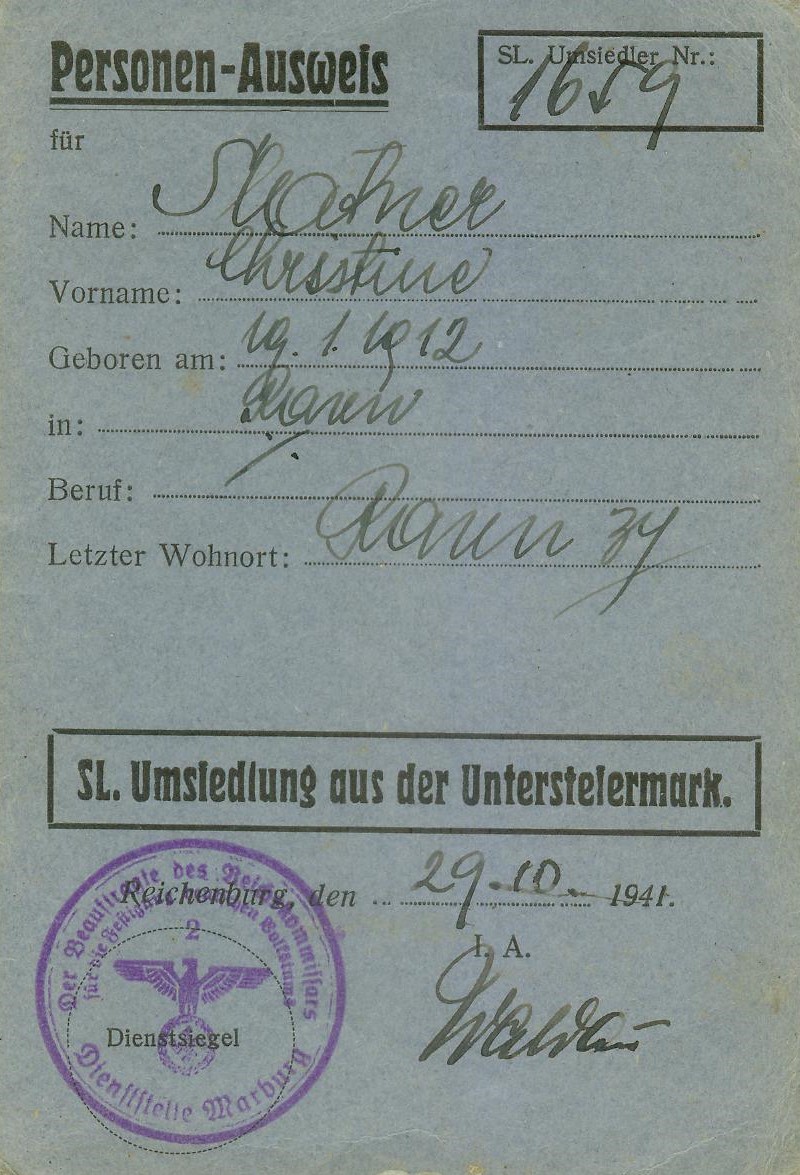 Personen-Ausweis
SL. Umsiedler Nr.:
1659
für
Name:
Vorname: Christine
Geboren am: 19. 1. 1912
in:
Beruf:
Letzter Wohnort:
SL. Umsiedlung aus der Untersteiermark.
Reichenburg, den 29.10. 1941.
I. A.
Der Beauftragte des Reichskommissars
für die Festigung deutschen Volkstums
2
Dienstsiegel
Dienststelle Marburg